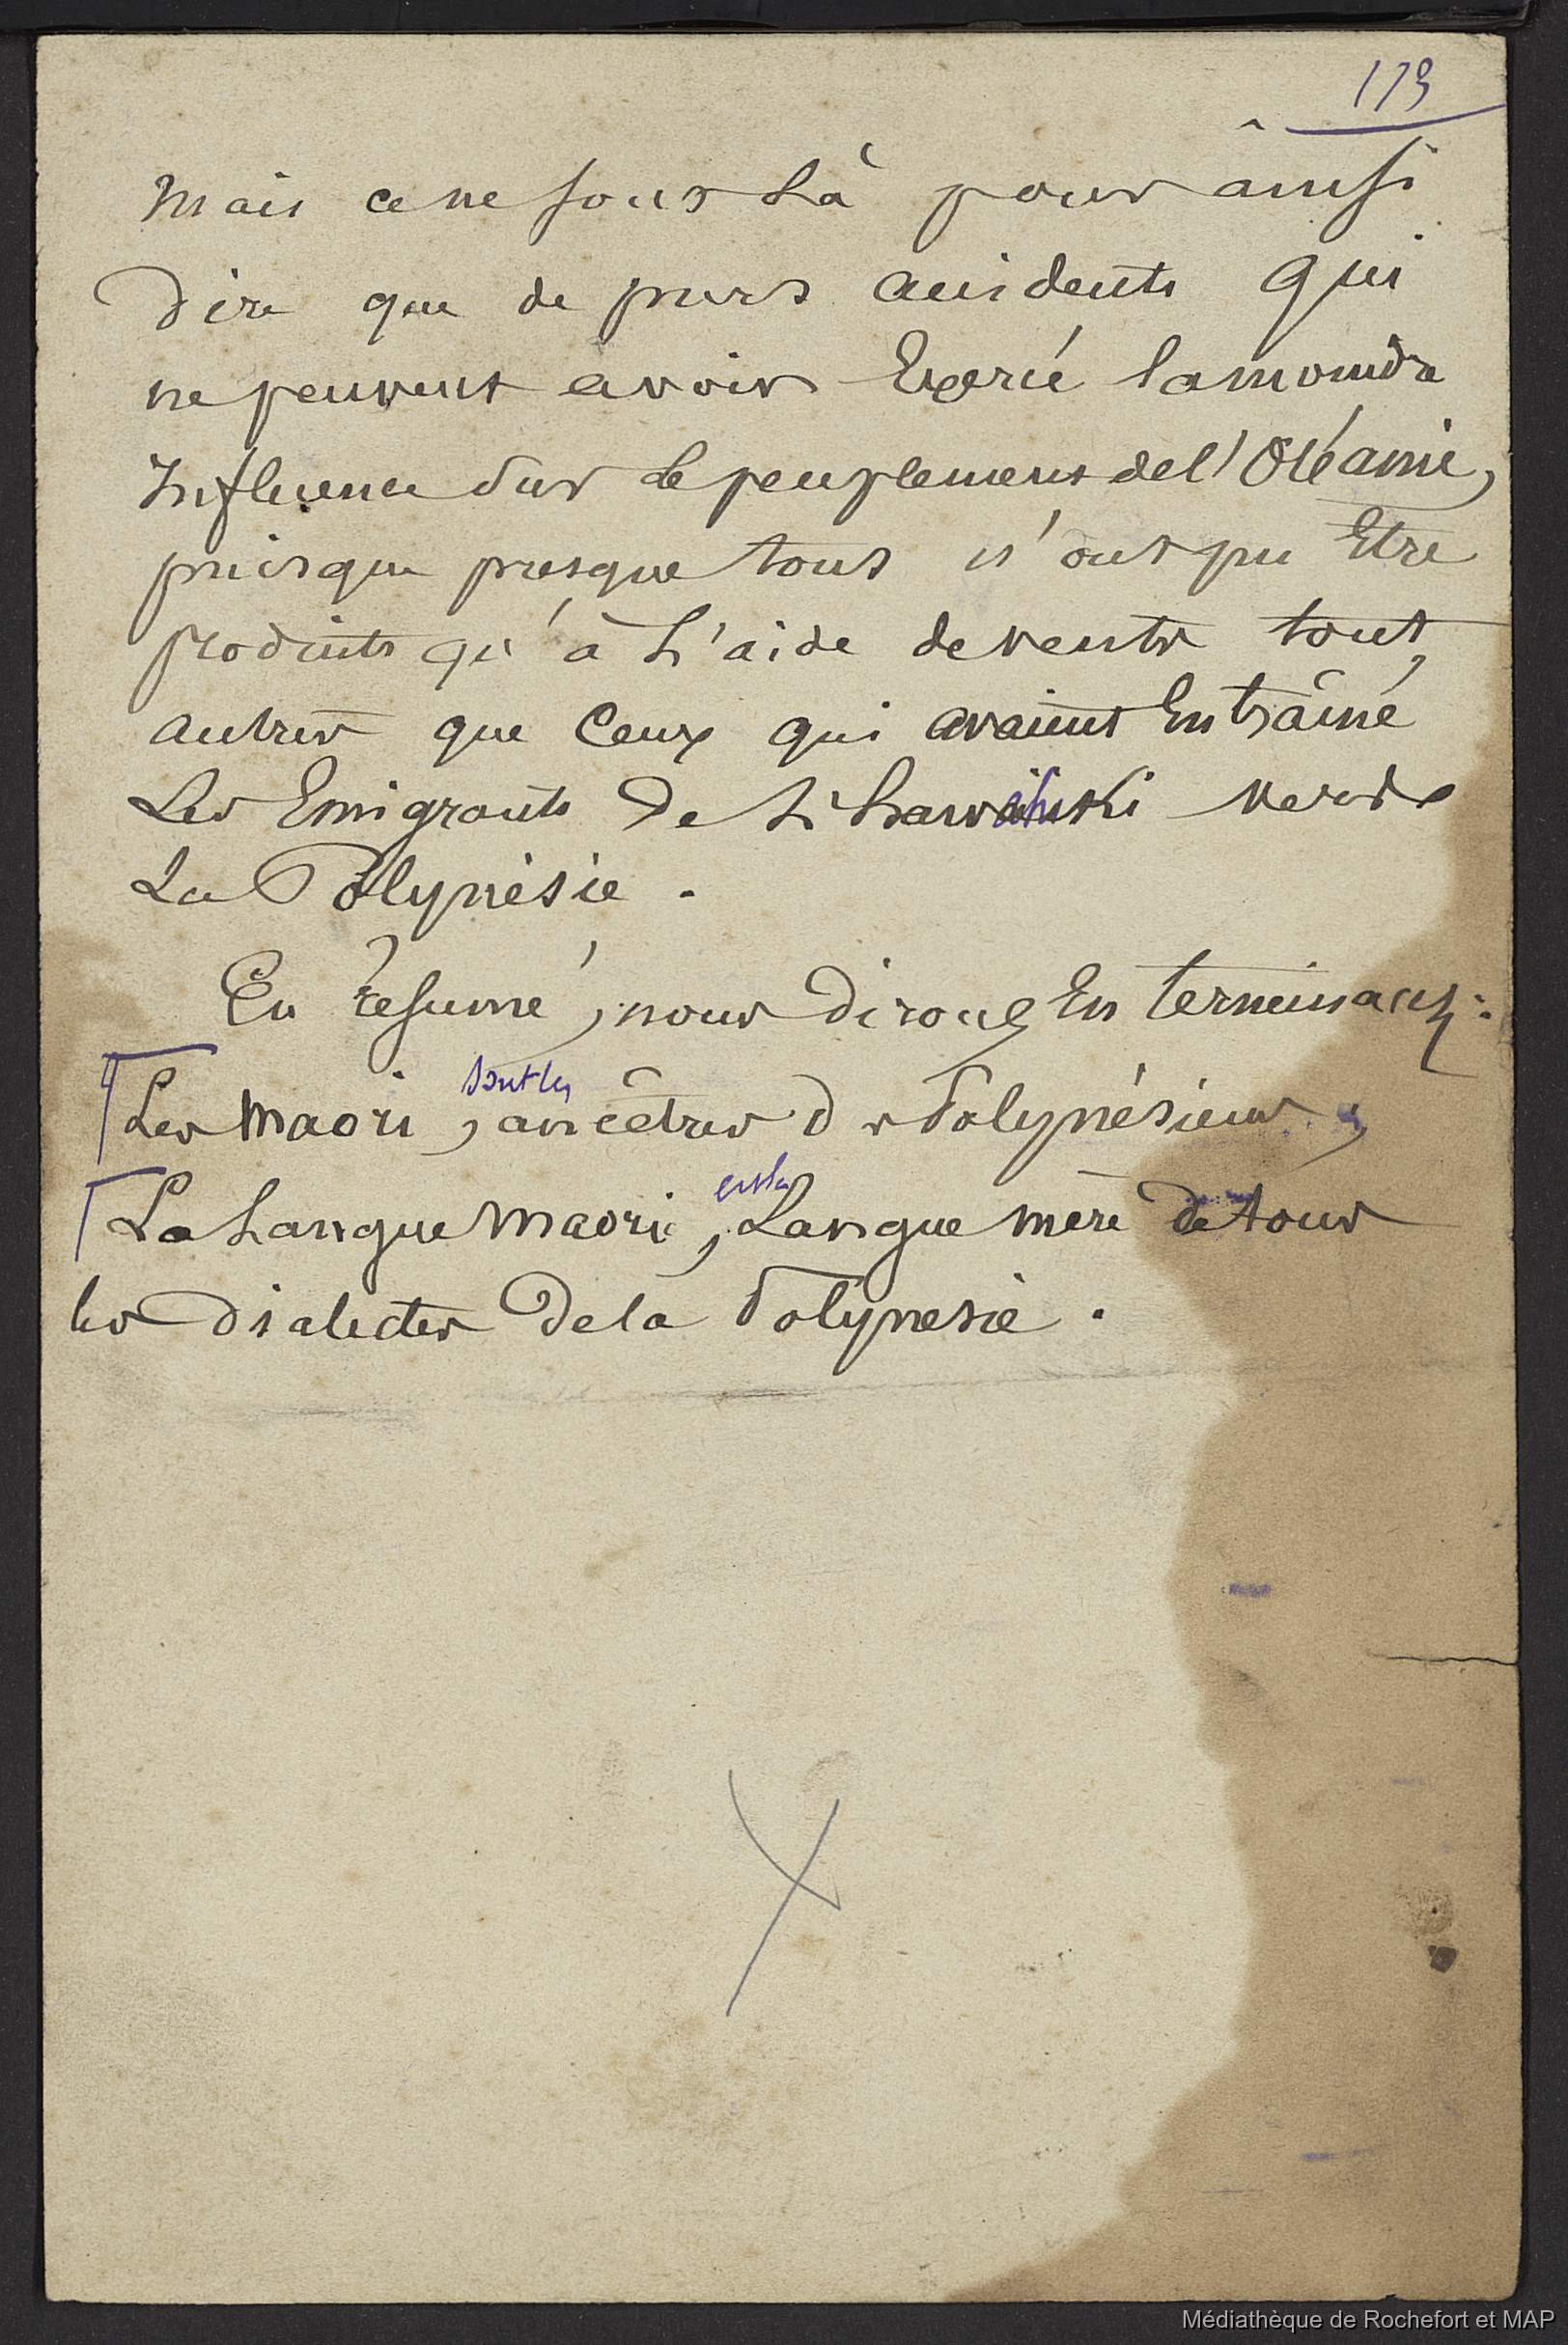 173
Mais ce ne sont là pour ainsi
dire que de purs accidents qui
ne peuvent avoir Exercé la moindre
Influence sur le peuplement de l'Océanie,
puisque presque tous n'ont pu Etre
produits qu'à l'aide de vents tout
autres que Ceux qui avaient Entraîné
Les Emigrants De L' Hawahiki vers
La Polynésie .
En résumé, nous dirons En terminant :
sont les
Les Maori , ancêtres des Polynésiens ;
est la
La Langue Maori , Langue mère de tous
les dialectes de la Polynesie .
Médiathèque de Rochefort et MAP